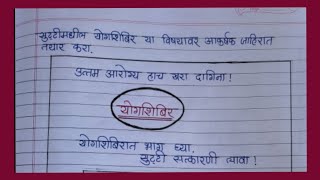 सुट्टीमधील योगशिबिर या विषयावर आकर्षक जाहिरात
तयार करा.
उत्तम आरोग्य हाच खरा दागिना!
योगशिबिर
योगशिबिरात भाग घ्या.
सुट्टी सत्कारणी लावा!